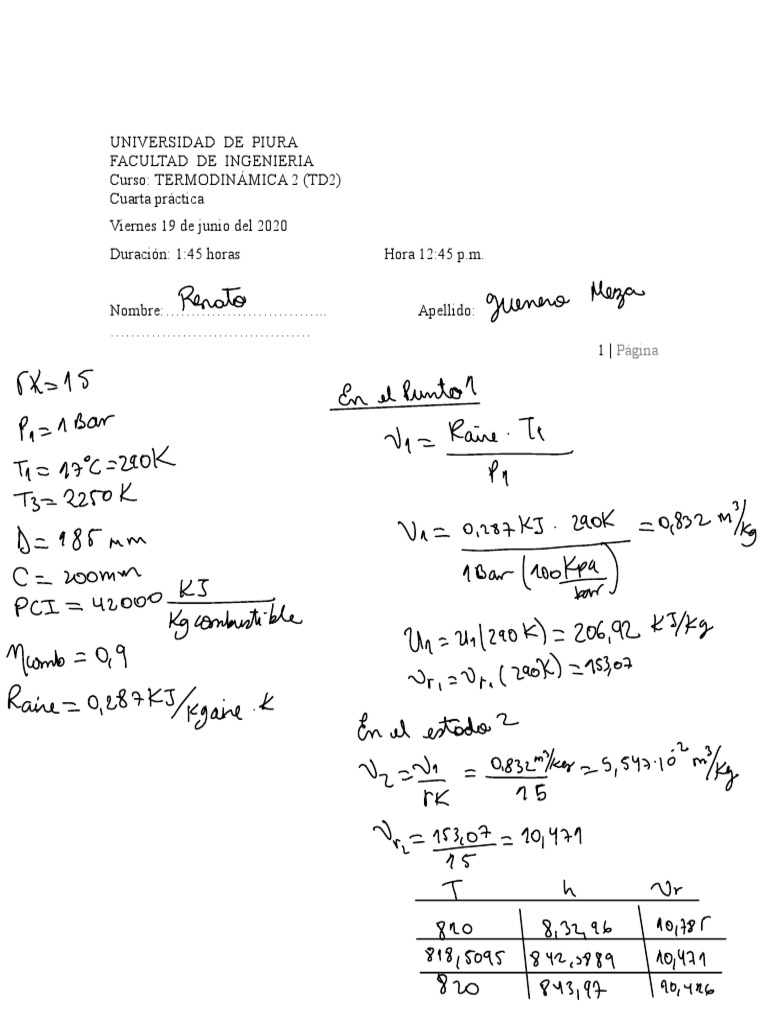 UNIVERSIDAD DE PIURA
FACULTAD DE INGENIERIA
Curso: TERMODINÁMICA 2 (TD2)
Cuarta práctica
Viernes 19 de junio del 2020
Duración: 1:45 horas Hora 12:45 p.m.
Nombre:................................ Renato Apellido: guerrero Meza
.......................................
1 | Página
rK=15
P1=1 Bar
T1=17°C=290K
T3=2250K
D=185 mm
C=200mm
PCI=42000 KJ/Kg combustible
ηcomb=0,9
Raire=0,287KJ/Kgaire.K
En el Punto 1
v1=Raire·T1/P1
v1=0,287KJ·290K/1Bar(100Kpa/bar)=0,832 m³/kg
u1=u1(290K)=206,92 KJ/Kg
vr1=vr1(290K)=153,07
En el estado 2
v2=v1/rK=0,832m³/kg/15=5,547·10⁻² m³/Kg
vr2=153,07/15=10,471
T h vr
810 8,32,96 10,785
818,5095 842,3889 10,471
820 843,97 10,426